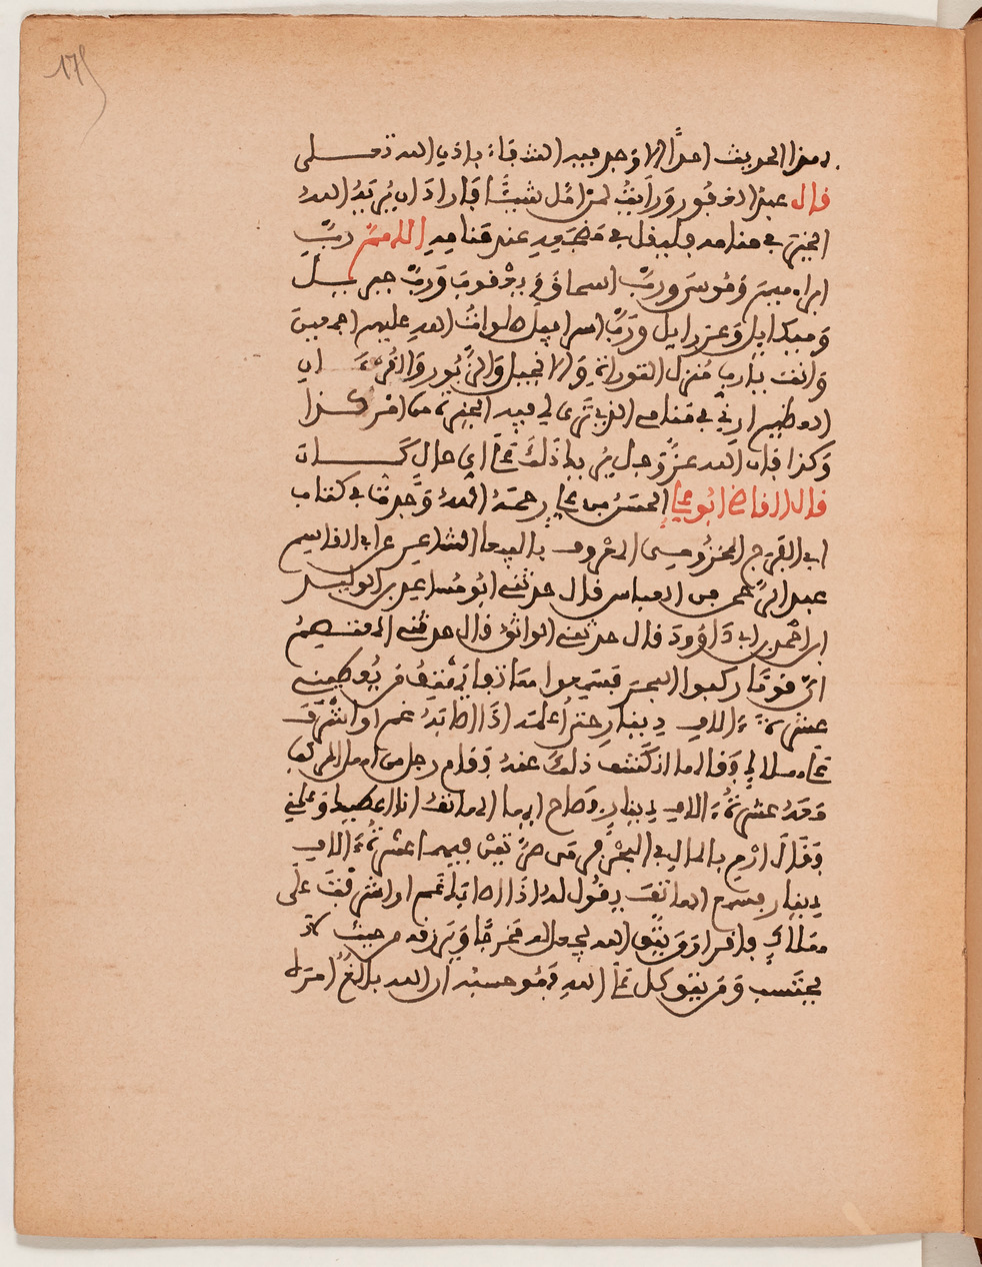 175
بهذا الحديث احدًا الا وجد فيه الشفاء باذن الله تعلى
فال عبد الغفور ورأيت لمن امل شيئا فاراد ان يريه الله
الخيرة في منامه فليفل في مضجعه عند منامه اللهم ربّ
ابراهيم وموسى وربّ اسحاق ويعفوب وربّ جبريل
وميكايل وعزرايل وربّ اسرافيل صلوات الله عليهم اجمعين
وانت يارب منزل التوراة والانجيل والزّبور والفرءان
العظيم ارني في منامي الذي ترى لي فيه الخيرة من امر كذا
وكذا فان الله عزّ وجل يريه ذلك على اي حال كان
فال الفاضي ابو علي المحسن بن علي رحمه الله وجدت في كتاب
ابي الفرج المخزومي المعروف بالببغا الشاعر عن ابي الفاسم
عبد الرّحمن بن العباس فال حدثني ابو مساعد بن الوليد
ابن احمد بن ابي داوود فال حدثني الواثق فال حدثني المعتصم
انّ فومًا ركبوا البحر فسمعوا هاتفا يهتف من يعطيني
عشرة ءالاف دينار حتى اعلمه اذا اصابه غم او اشرف
على هلاك وفالها انكشف ذلك عنه وفام رجل من اهل المركب
معه عشرة ءالاف دينار وصاح ايها الهاتف انا اعطيك وعلمني
وفال ارم بالمال في البحر فرمى صرّتين فيهما عشرة ءالاف
دينار فسمع الهاتف يفول له اذا اصابك غم او اشرفت على
هلاك فافرا ومن يتق الله يجعل له مخرجًا ويرزفه من حيث لا
يحتسب ومن يتوكل على الله فهو حسبه ان الله بالغ امره